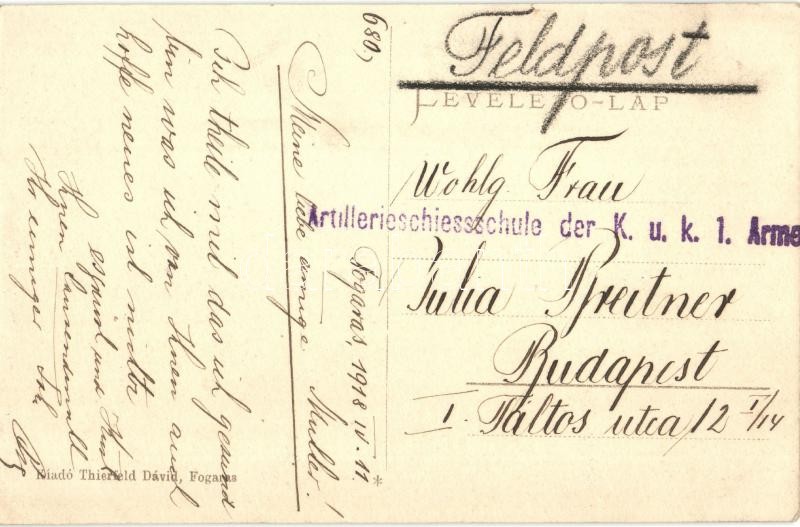 680,
Feldpost
LEVELEZŐ-LAP
Wohlg. Frau
Artillerieschiessschule der K. u. k. 1. Arme
Julia Breitner
Budapest
I. Táltos utca 12 I/14
Fogaras, 1918 IV. 11.
Meine liebe einzige Mutter!
Ich theile mit das ich gesund
bin was ich von Ihnen auch
hoffe neues ist nichts
es und
Ihnen tausendmall
Ihr einziger
Kiadó Thierfeld Dávid, Fogaras
*